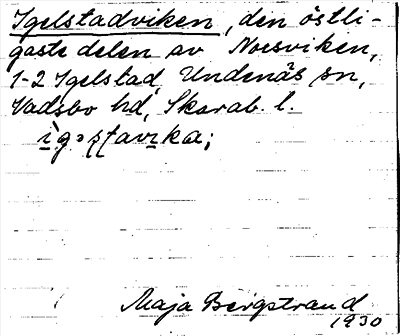 Igelstadviken, den östli-
gaste delen av Noesviken,
1-2 Igelstad, Undenäs sn,
Vadsbo hd, Skarab. l.
Maja Bergstrand
1930